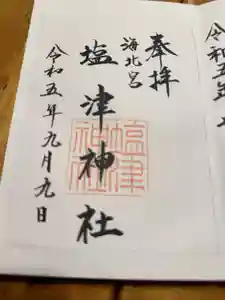 奉拝
海北宮
塩津神社
令和五年九月九日
塩津
神社
令和五年